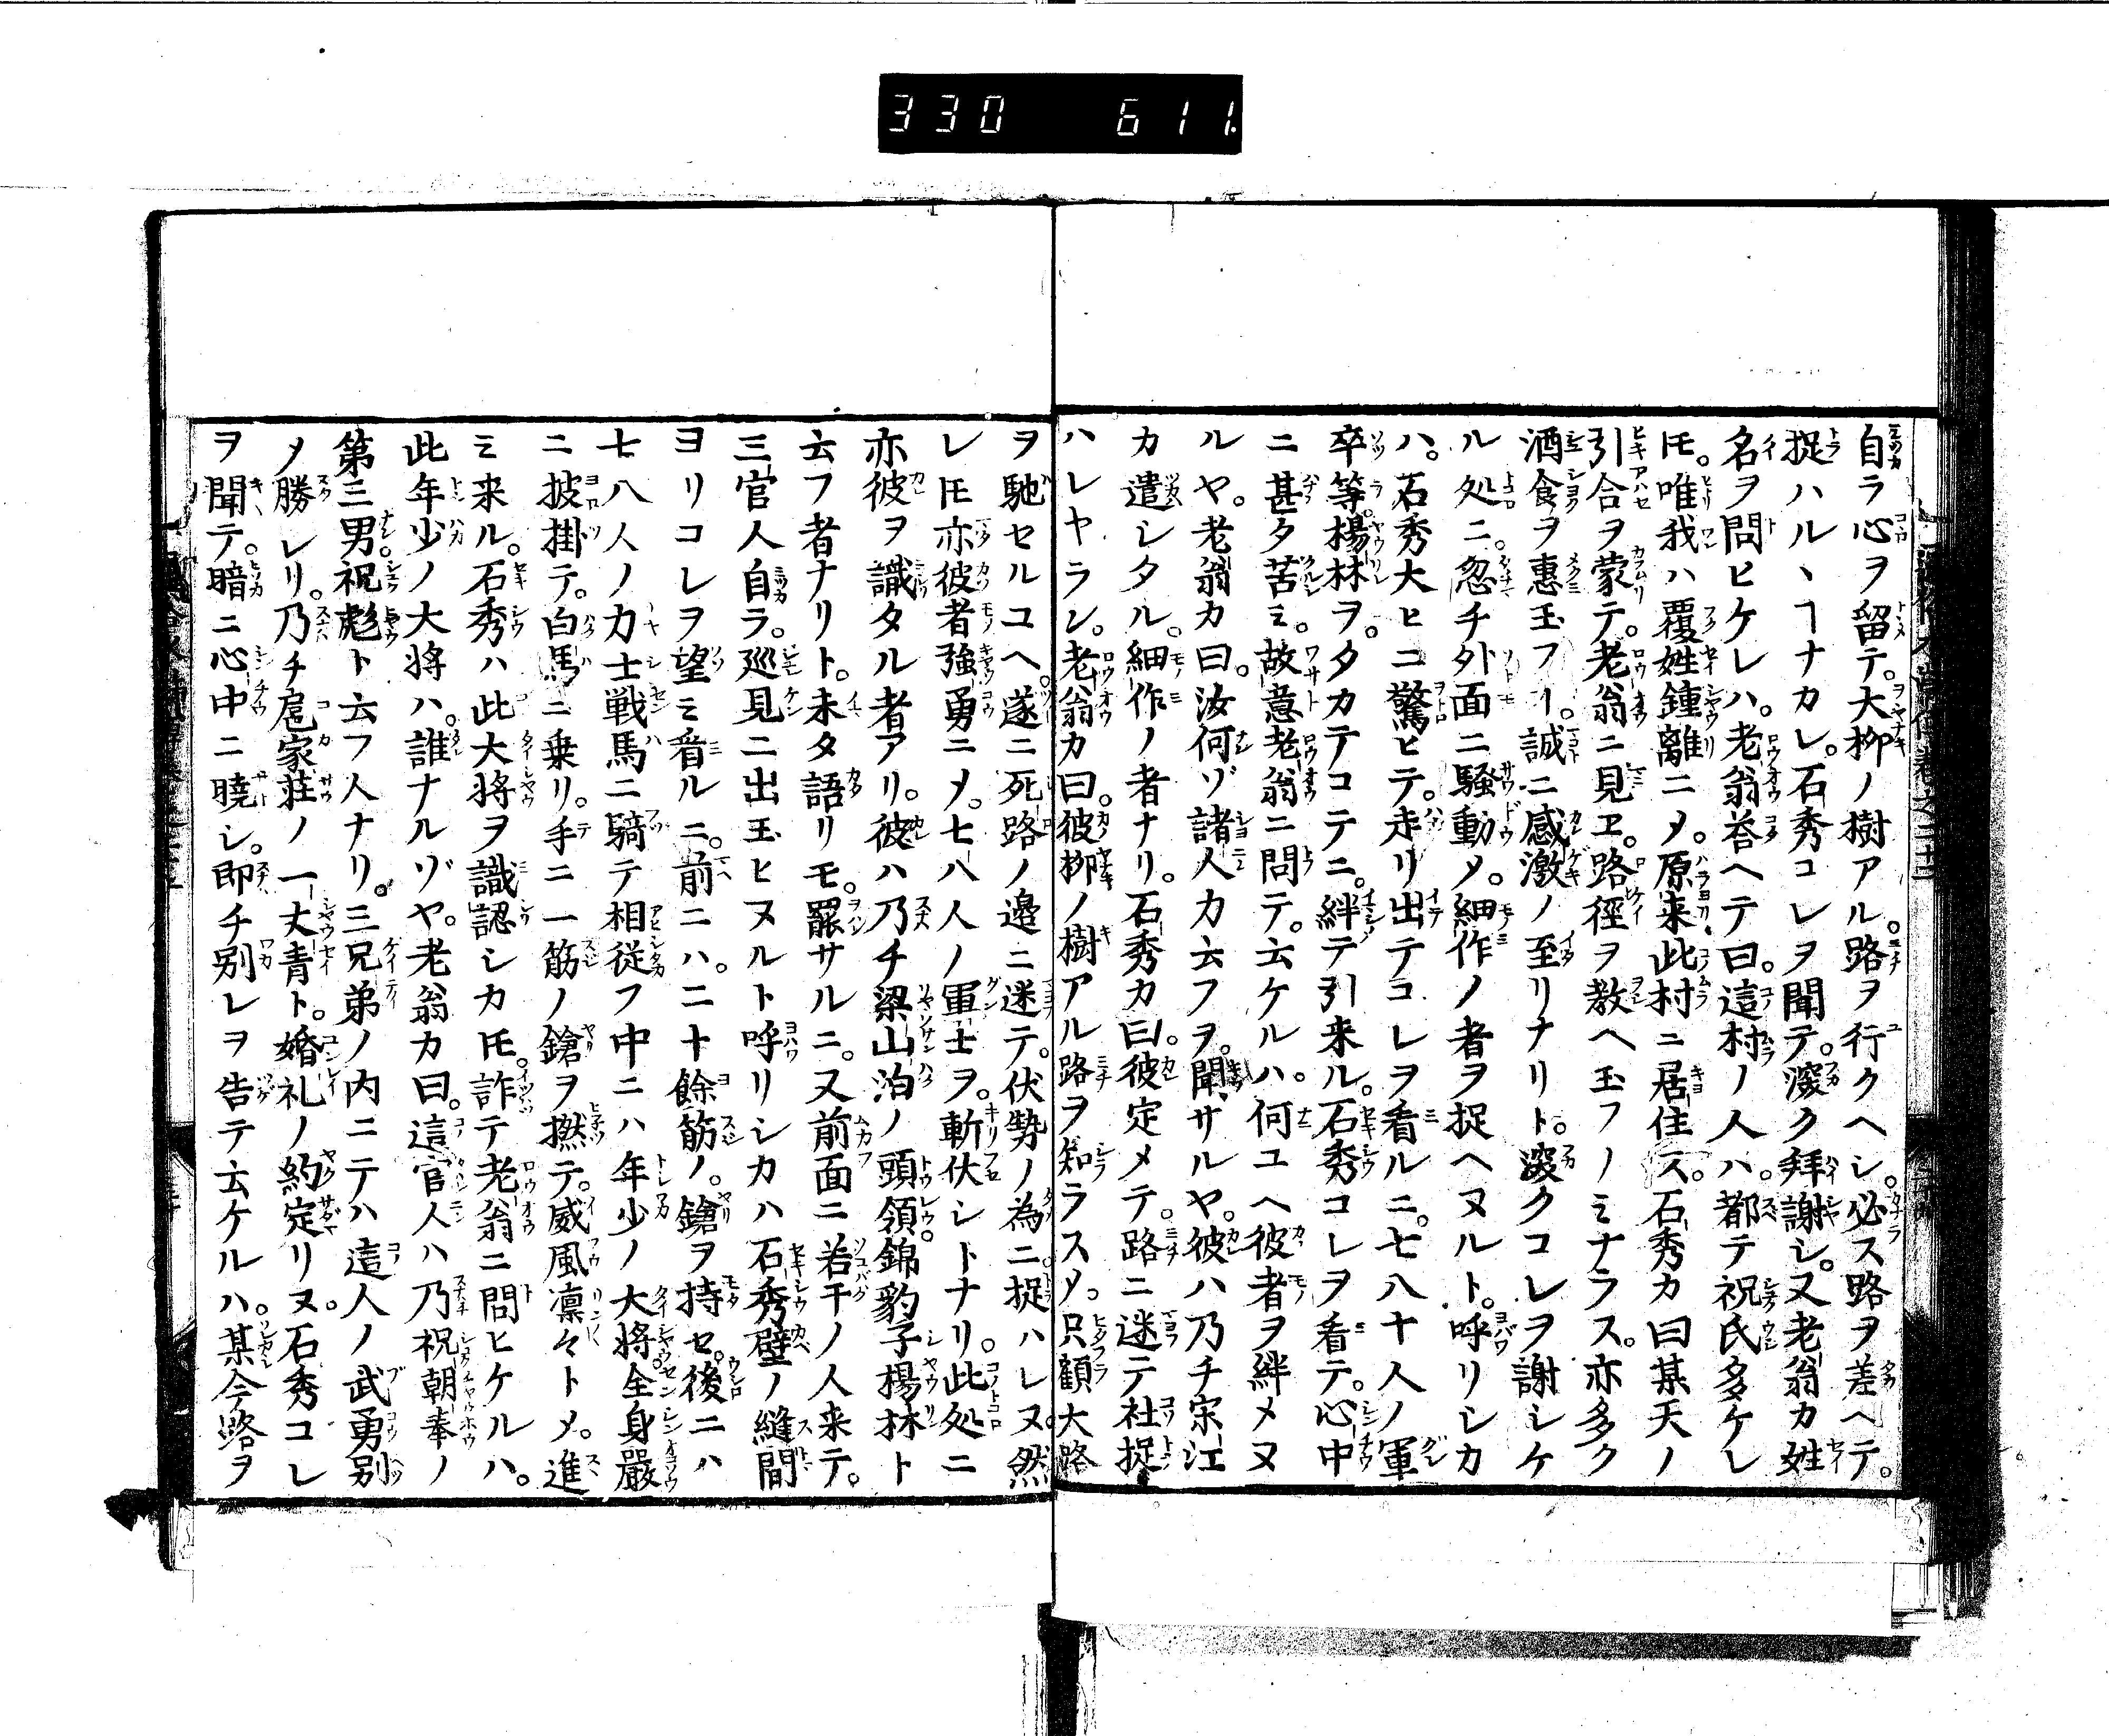 330 611.
自ラ心ヲ留テ。大柳ノ樹アル。路ヲ行クヘシ。必ス路ヲ差ヘテ。
捉ハルヽヿナカレ。石秀コレヲ聞テ。深ク拜謝シ。又老翁カ姓
名ヲ問ヒケレハ。老翁荅ヘテ曰。這村ノ人ハ。都テ祝氏多ケレ
𪜈。唯我ハ覆姓鍾離ニメ。原来此村ニ居住ス。石秀カ曰某天ノ
引合ヲ蒙テ。老翁ニ見ヱ。路徑ヲ教ヘ玉フノミナラス。亦多ク
酒食ヲ惠玉フヿ。誠ニ感激ノ至リナリト。深クコレヲ謝シケ
ル処ニ。忽チ外面ニ騒動メ。細作ノ者ヲ捉ヘヌルト。呼リシカ
ハ。石秀大ヒニ驚ヒテ。走リ出テコレヲ看ルニ。七八十人ノ軍
卒等。楊林ヲ。タカテコテニ。絆テ引来ル。石秀コレヲ看テ。心中
ニ甚タ苦ミ。故意老翁ニ問テ。云ケルハ。何ユヘ彼者ヲ絆メヌ
ルヤ。老翁カ曰。汝何ゾ諸人カ云フヲ。聞サルヤ。彼ハ乃チ宋江
カ遣シタル。細作ノ者ナリ。石秀カ曰。彼定メテ。路ニ迷テ社捉
ハレヤラン。老翁カ曰。彼柳ノ樹アル路ヲ知ラスメ。只顧大路
ヲ馳セルユヘ。遂ニ死路ノ邉ニ迷テ。伏勢ノ為ニ捉ハレヌ。然
レ𪜈亦彼者強勇ニメ。七八人ノ軍士ヲ。斬伏シトナリ。此処ニ
亦彼ヲ識タル者アリ。彼ハ乃チ梁山泊ノ頭領。錦豹子楊林ト
云フ者ナリト。未タ語リモ。罷サルニ。又前面ニ若干ノ人来テ。
三官人自ラ。巡見ニ出玉ヒヌルト呼リシカハ石秀壁ノ縫間
ヨリコレヲ望ミ看ルニ。前ニハ。二十餘筋ノ。鎗ヲ持セ。後ニハ
七八人ノ力士戦馬ニ騎テ相従フ中ニハ年少ノ大将。全身嚴
ニ披掛テ。白馬ニ乗リ。手ニ一筋ノ鎗ヲ撚テ。威風凛々トメ。進
ミ来ル。石秀ハ此大将ヲ識認シカ𪜈。詐テ老翁ニ問ヒケルハ。
此年少ノ大将ハ。誰ナルゾヤ。老翁カ曰。這官人ハ乃祝朝奉ノ
第三男。祝彪ト云フ人ナリ。三兄弟ノ内ニテハ這人ノ武勇別
メ勝レリ。乃チ扈家荘ノ一丈青ト。婚礼ノ約定リヌ。石秀コレ
ヲ聞テ。暗ニ心中ニ曉シ。即チ別レヲ告テ云ケルハ。某今路ヲ